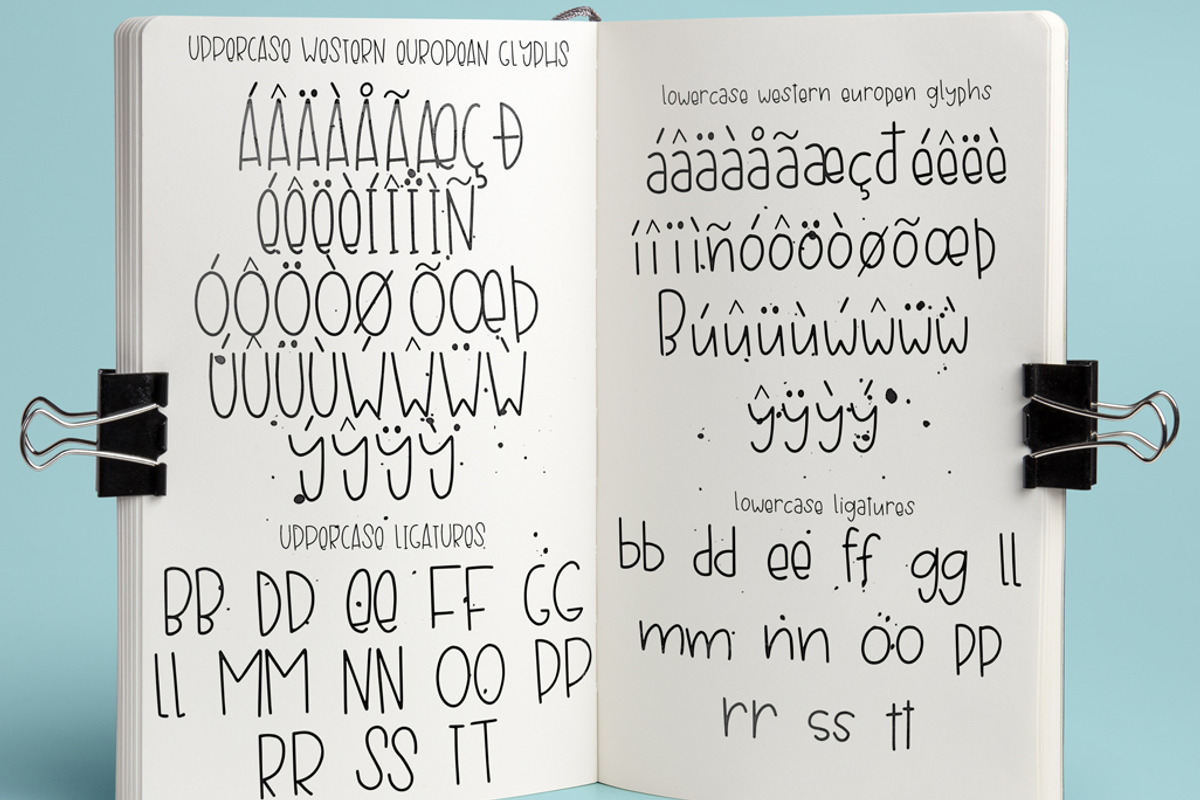 UPPERCASE WESTERN EUROPEAN GLYPHS
ÁÂÄÀÅÃÆÇÐ
ÉÊËÈÍÎÏÌÑ
ÓÔÖÒØÕŒÞ
ÚÛÜÙẂŴẄẀ
ÝŶŸỲ
UPPERCASE LIGATURES
BB DD EE FF GG
LL MM NN OO PP
RR SS TT
lowercase western europen glyphs
áâäàåãæçđéêëè
íîïìñóôöòøõœþ
ßúûüùẃŵẅẁ
ŷÿỳý
lowercase ligatures
bb dd ee ff gg ll
mm nn oo pp
rr ss tt